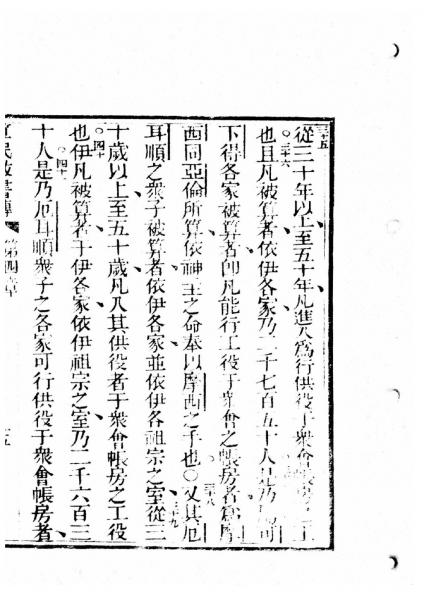 三十五
從三十年以上至五十年凡進入爲行供役于衆會帳房之工
三十六
也且凡被算者依伊各家乃二千七百五十人是乃可
下得各家被算者即凡能行工役于衆會之帳房者爲摩
西同亞倫所算依神主之命奉以摩西之手也○又其厄
三十八
耳順之衆子被算者依伊各家並依伊各祖宗之室從三
三十九
十歲以上至五十歲凡入其供役者于衆會帳房之工役
四十
也伊凡被算者于伊各家依伊祖宗之室乃二千六百三
四十
十人是乃厄耳順衆子之各家可行供役于衆會帳房者
民數書傳 第四章 五